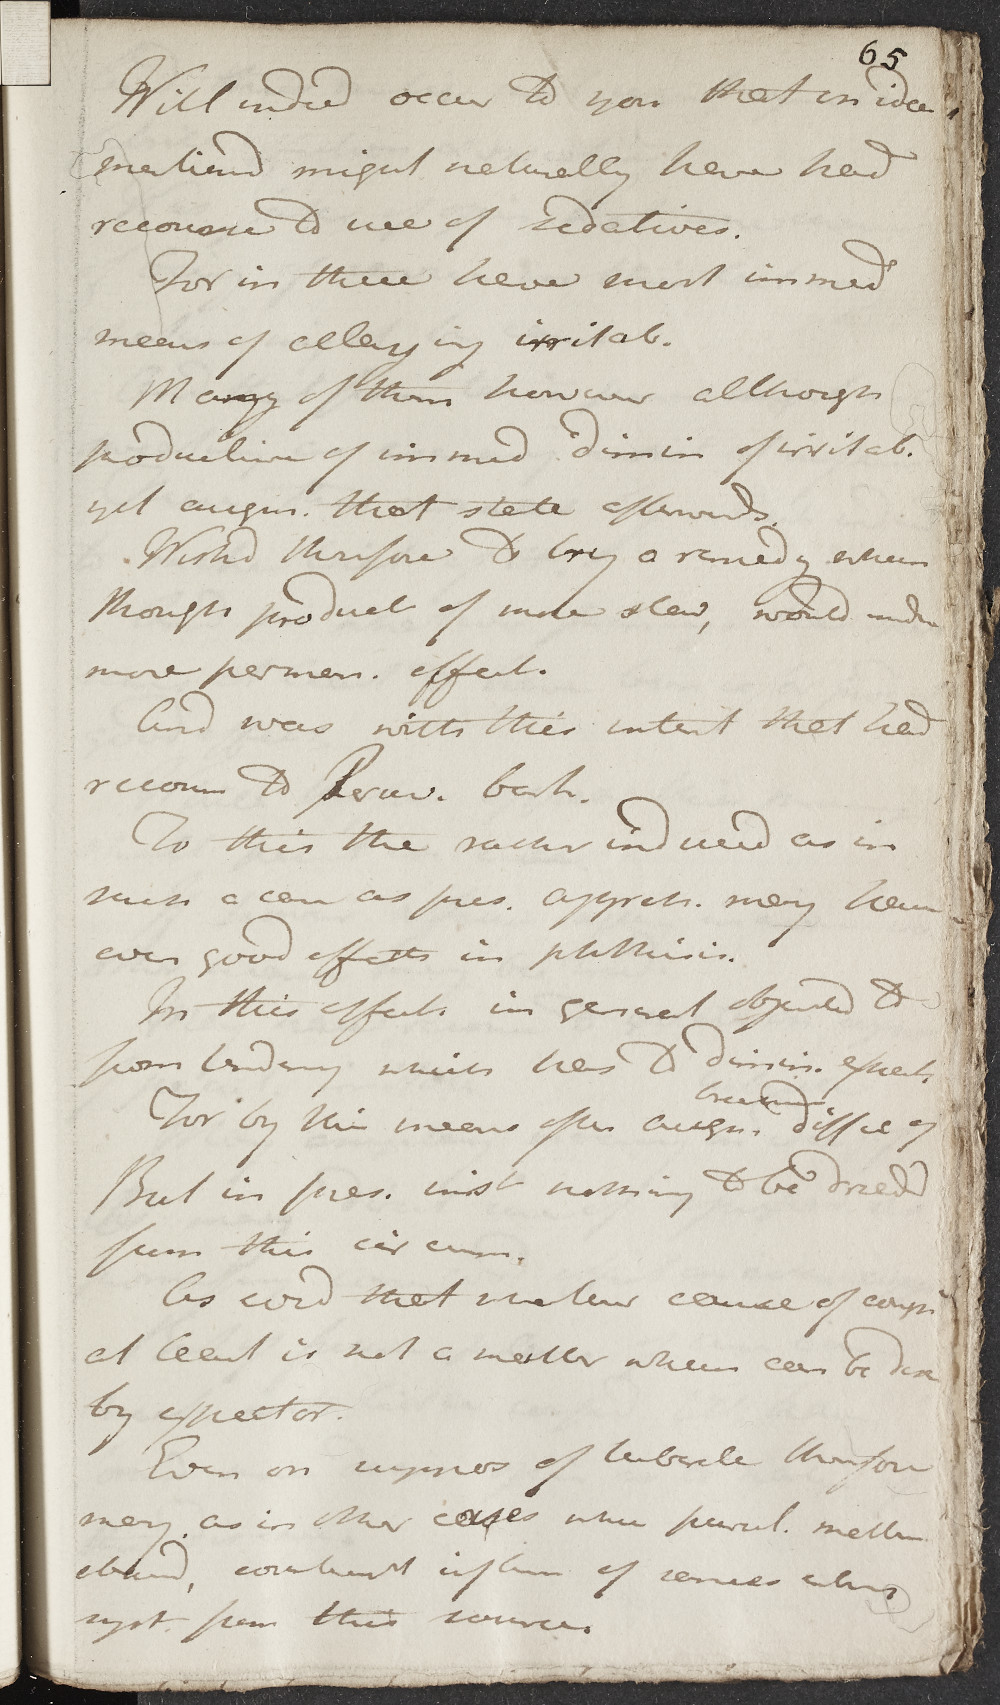 65
Will indeed occur to you that in idea
mentiond might naturally have had
recourse to use of sedatives.
For in these have most immed
means of allaying irritab.
Many of them however although
productive of immed dimin of irritab.
yet augm. that state afterwards.
Wishd therefore to try a remedy whch
though product of more slow, would
more perman. effect.
And was with this intent that had
recours to Peruv. bark.
To this the rather induced as in
such a case as pres. appreh. may have
even good effects in phthisis.
In this effects in general objected to
from tendency which has to dimin. expect.
breathing
For by this means often augm. diffic of
But in pres. inst nothing to be dread
from this circum.
As cord that matter cause of cough
at least is not a matter whch can be
by expector.
Even on suppos of tubercle therefore
may. as in other cases where purul. matter
abound, counteract influen of
syst. from this source.